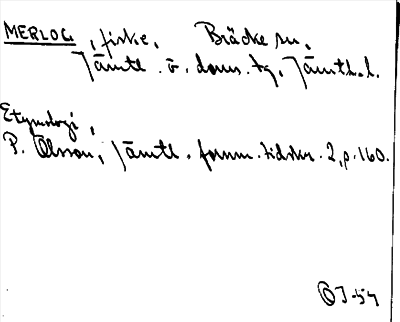 MERLOG, fiske, Bräcke sn,
Jämtl. ö. doms. tg, Jämtl. l.
Etymologi,
P. Olsson, Jämtl. fornm. tidskr. 2, p. 160.
OJ-54